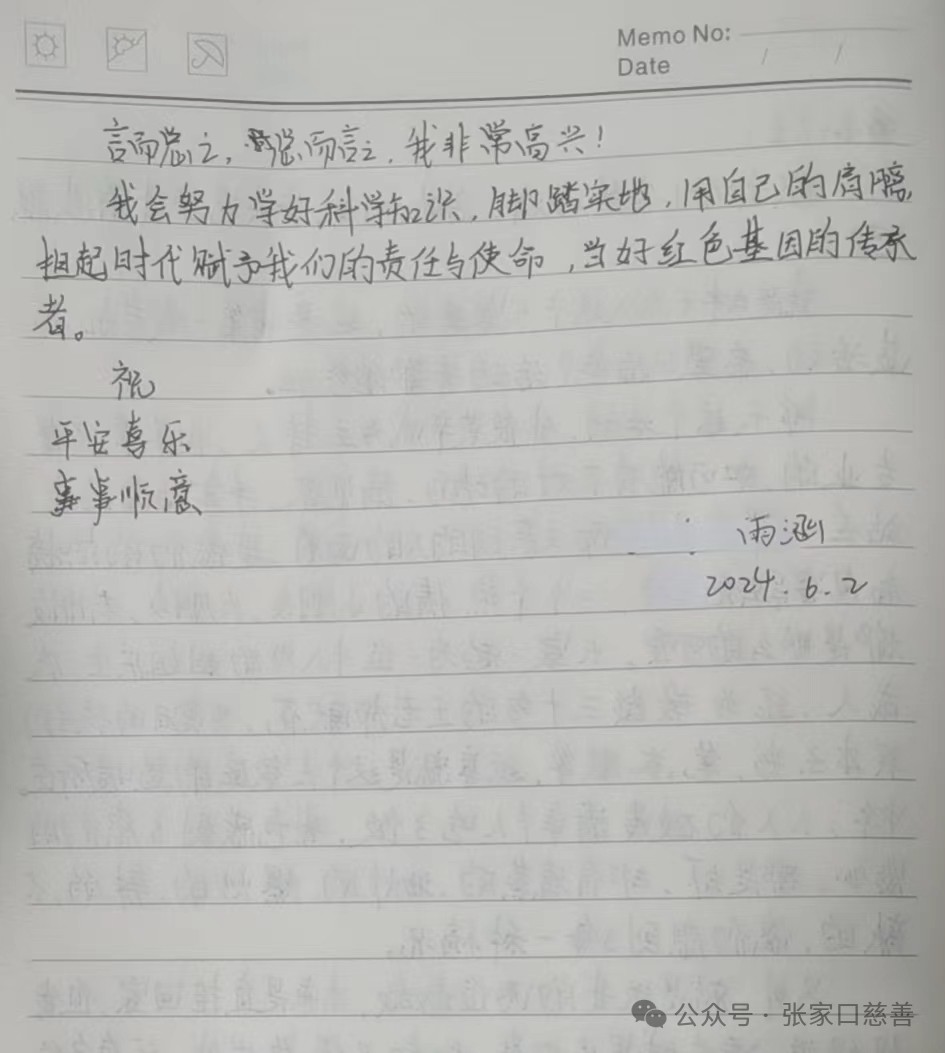 Memo No:
Date / /
言而总之，总而言之，我非常高兴！
我会努力学好科学知识，脚踏实地，用自己的肩膀
担起时代赋予我们的责任与使命，当好红色基因的传承
者。
祝
平安喜乐
事事顺意
雨涵
2024.6.2
公众号·张家口慈善